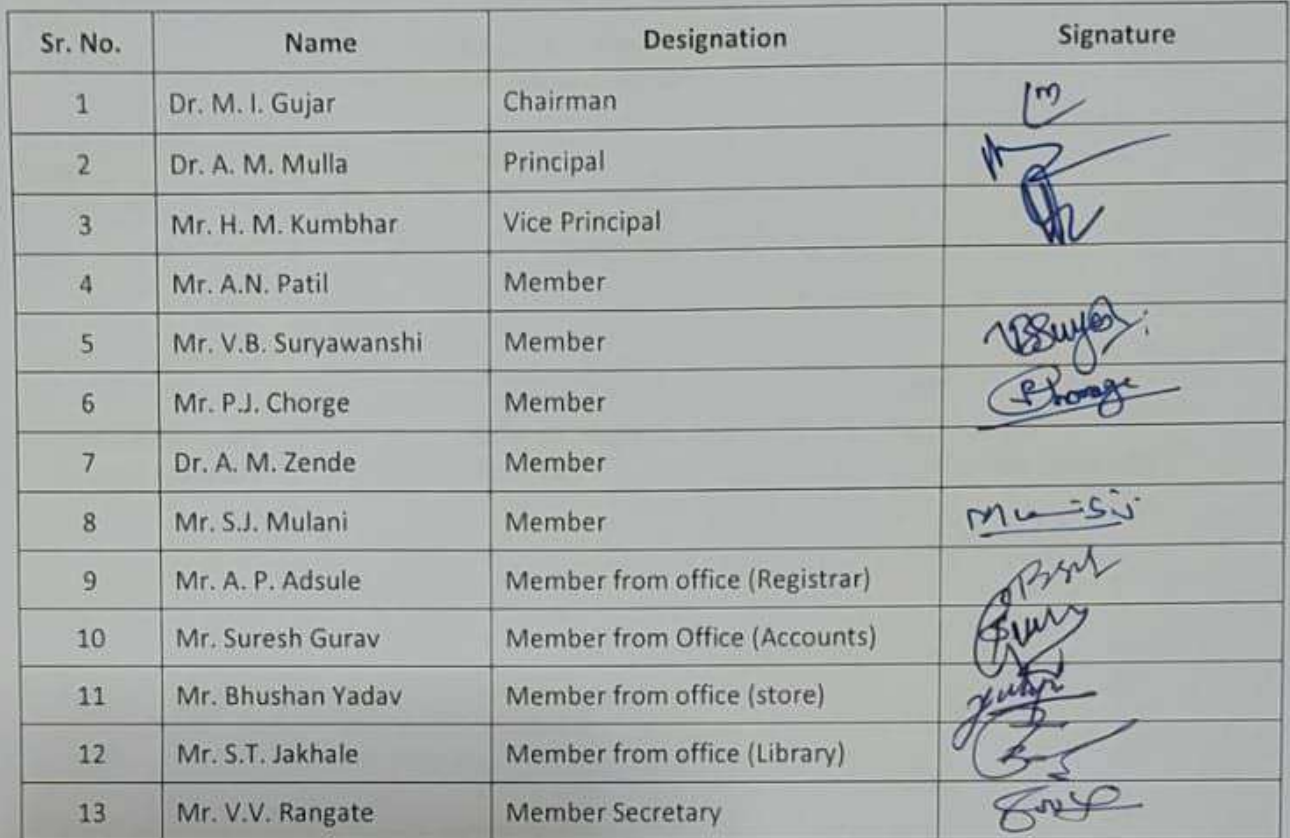 Sr. No. Name Designation Signature
1 Dr. M. I. Gujar Chairman
2 Dr. A. M. Mulla Principal
3 Mr. H. M. Kumbhar Vice Principal
4 Mr. A.N. Patil Member
5 Mr. V.B. Suryawanshi Member
6 Mr. P.J. Chorge Member
7 Dr. A. M. Zende Member
8 Mr. S.J. Mulani Member
9 Mr. A. P. Adsule Member from office (Registrar)
10 Mr. Suresh Gurav Member from Office (Accounts)
11 Mr. Bhushan Yadav Member from office (store)
12 Mr. S.T. Jakhale Member from office (Library)
13 Mr. V.V. Rangate Member Secretary